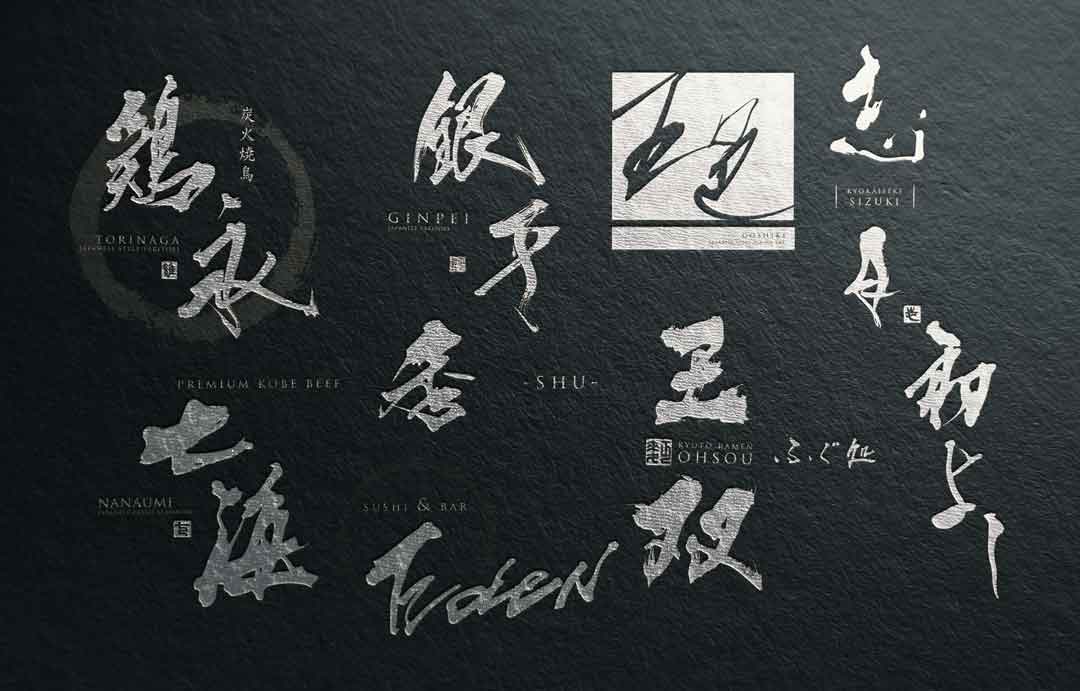 鶏永
炭火焼鳥
TORINAGA
銀平
GINPEI
GOSHIKI
志月
SIZUKI
PREMIUM KOBE BEEF
秀
-SHU-
王双
RAMEN
OHSOU
ふぐ処
七海
NANAUMI
SUSHI & BAR
Eden